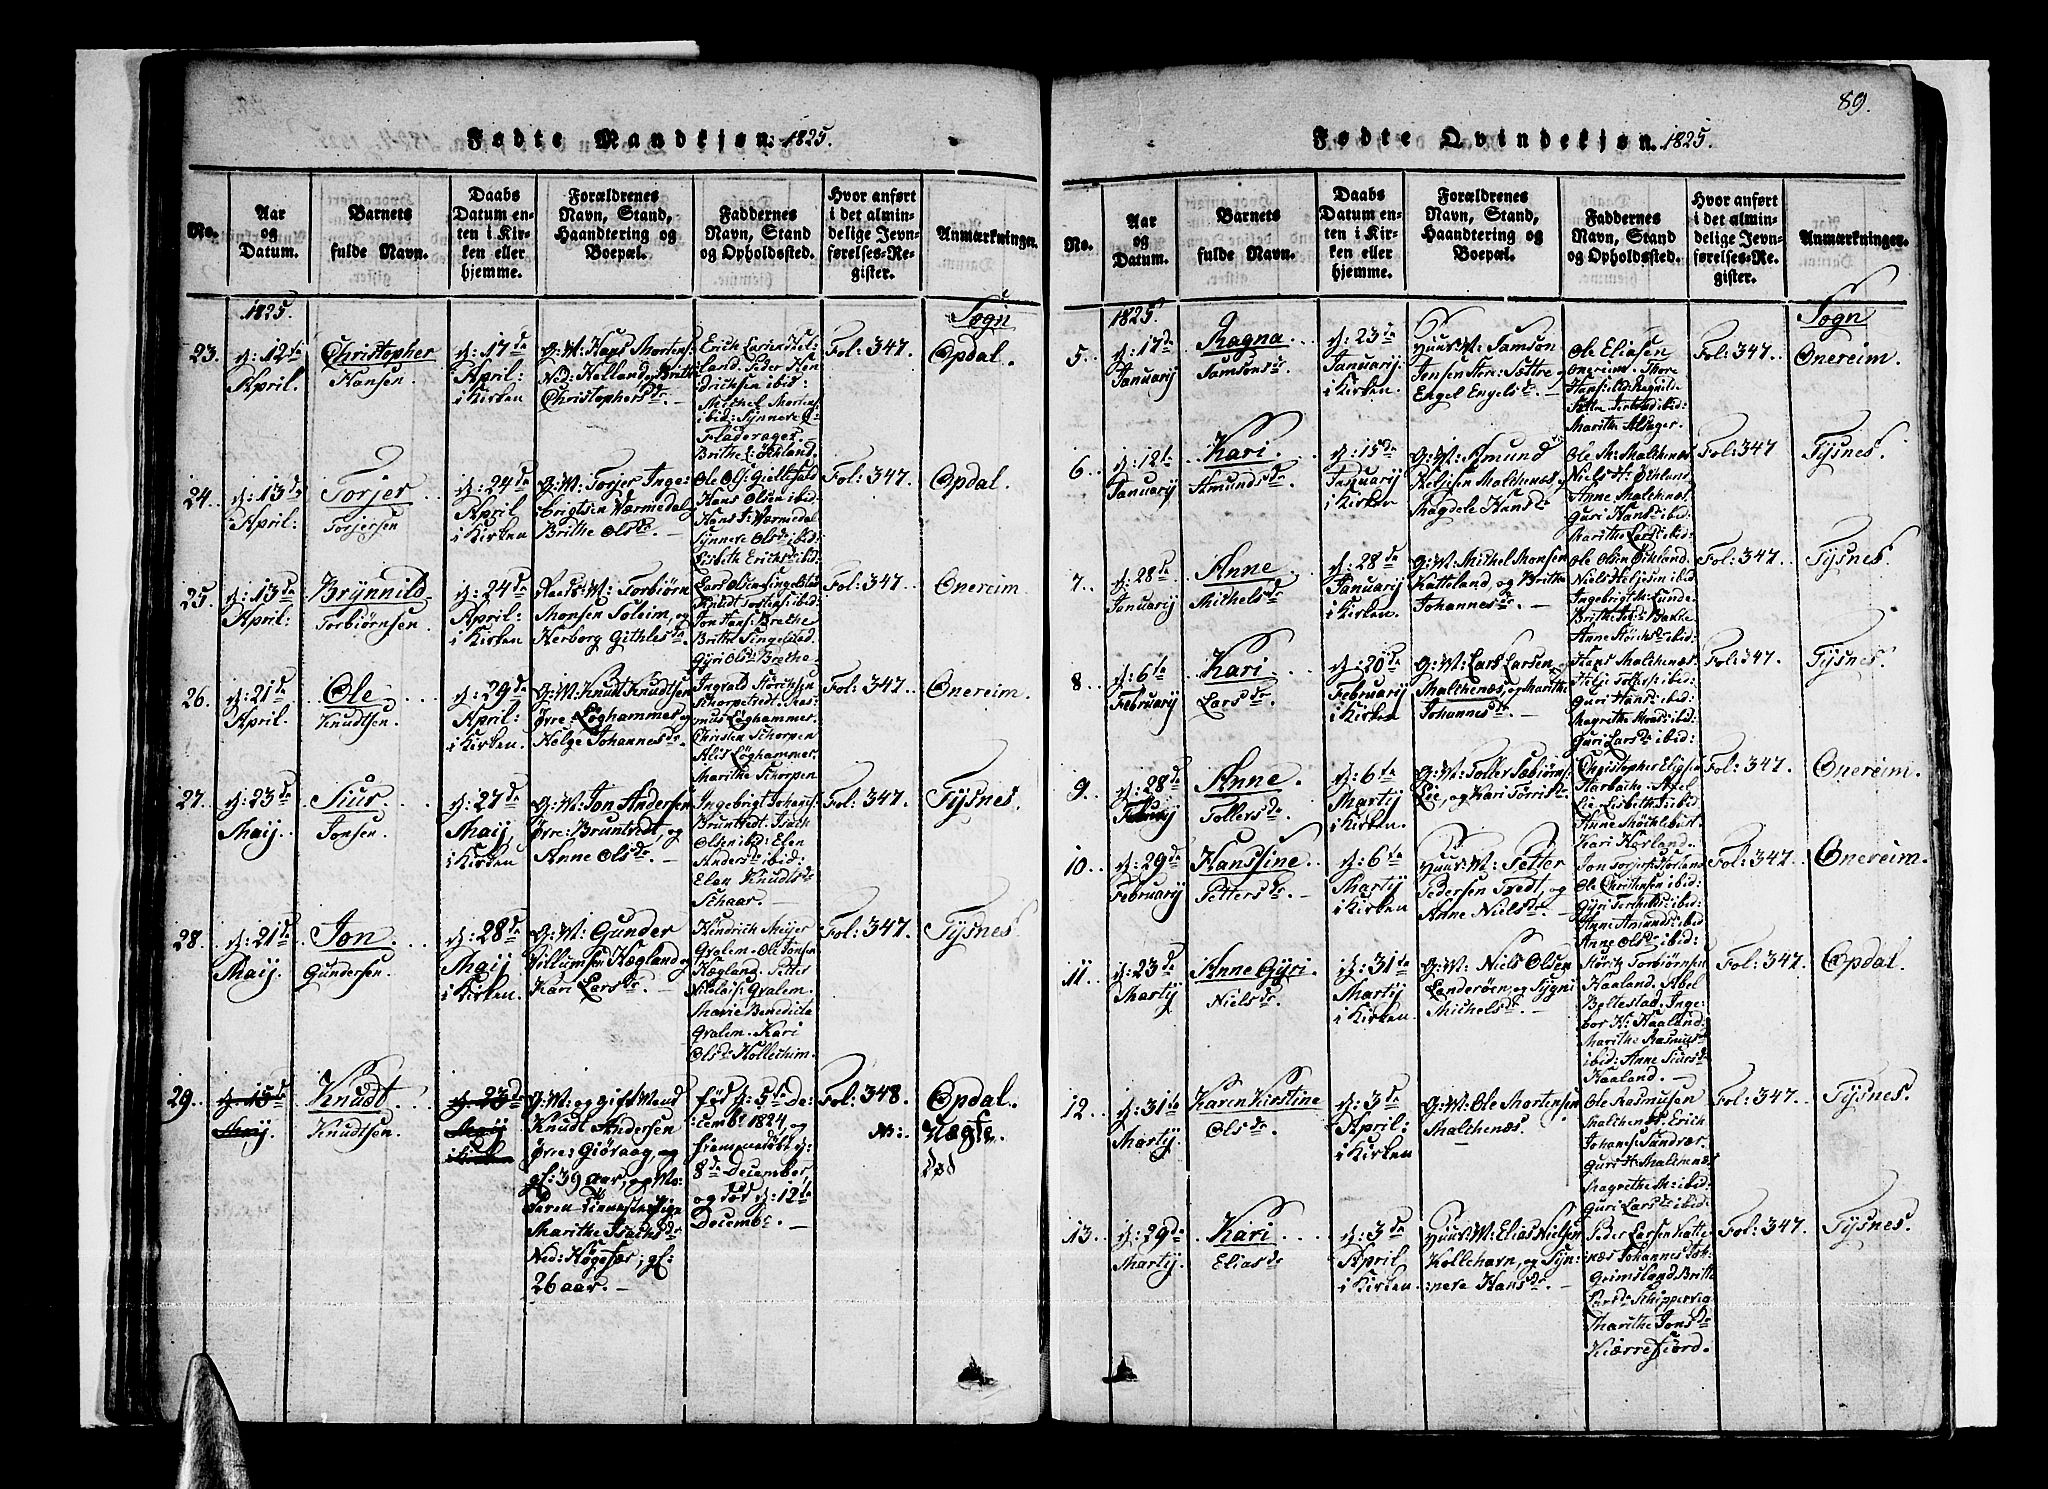 Fødte Mandkjøn: 1825.
No.
Aar
og
Datum.
Barnets
fulde Navn.
Daabs
Datum en-
ten i Kir-
ken eller
hjemme.
Forældrenes
Navn, Stand,
Haandtering og
Boepæl.
Faddernes
Navn, Stand
og Opholdssted.
Hvor anført
i det almin-
delige Jevn-
førelses-Re-
gister.
Anmærkninger.
1825.
Sogn
23.
d: 12te
April.
Christopher
Hansen.
d: 17de
April:
i Kirken
G: M: Hans Mortens:
Ned: Helland, og Brithe
Christophersdr. —
Fol: 347.
Opdal.
24.
d: 13de
April:
Torjer
Torjersen
d: 24de
April
i Kirken
G: M: Torjer Inge-
brigtsen Værmedal
Brithe Olsdr. —
Ole Ols: Gielkestad
Hans Olsen ibid:
Hans T: Værmedal
Synneve Olsdr ibid:
Lisbeth Ericksdr ibid:
Fol: 347.
Opdal.
25.
d: 13de
April:
Brynnild
Torbiørnsen
d: 24de
April:
i Kirken
M: Torbiørn
Monsen Soleim, og
Herborg Githlesdr.
Lars Olsen Singelstad
Knudt Tostens: ibid:
Jon Hans: Brethe
Brithe Singelstad.
Gyri Olsdr Brethe.
Fol: 347.
Onereim.
26.
d: 21de
April.
Ole
Knudtsen.
d: 29de
April:
i Kirken.
G: M: Knudt Knudtsen
Øvre: Løghammer, og
Helge Johannesdr.
Løghammer.
Christen Schorpen
Alis Løghammer.
Marithe Schorpen
Fol: 347.
Onereim.
27.
d: 23de
Maij.
Siur
Jonsen.
d: 27de
Maij,
i Kirken
G: M: Jon Andersen
Øvre: Bruntvedt, og
Anne Olsdr. —
Ingebrigt Johans:
Bruntvedt. Isach
Olsen ibid: Elen
Andersdr ibid:
Elen Knudtsdr
Schaar. —
Fol: 347.
Tysnes.
28.
d: 21de
Maij.
Jon.
Gundersen.
d: 28de
Maij
i Kirken.
G: M: Gunder
Villumsen Hægland og
Kari Larsdr. —
Hindrich Meijer
Gvalem. Ole Jonsen
Hægland. Petter
Nicolais: Gvalem.
Marie Benedicta
Gvalem. Kari
Olsdr
Fol: 347.
Tysnes.
29.
d: 15de
Maij.
Knudt
Knudtsen.
d: 23de
Maij
i Kirken
G: M: og gift Mand
Knudt Andersen
Øvre: Giøraag, og
gl: 39 aar, og Mo-
deren Tienestepige
Marithe Isachsdr
Ned: Høgesæt, gl:
26 aar. —
fød d: 5te De-
cembr: 1824, og
hiemmedøbt d:
8de December,
og død d: 12te
Decembr. —
Fol: 348.
Opdal.
Nb:
Uægte.
død
89.
Fødte Qvindekjøn. 1825.
No.
Aar
og
Datum.
Barnets
fulde Navn.
Daabs
Datum en-
ten i Kir-
ken eller
hjemme.
Forældrenes
Navn, Stand,
Haandtering og
Boepæl.
Faddernes
Navn, Stand
og Opholdssted.
Hvor anført
i det almin-
delige Jevn-
førelses-Re-
gister.
Anmærkninger.
1825.
Sogn
5.
d: 17de
Januarij
Ragna
Samsonsdr.
d: 23de
Januarij.
i Kirken.
Huus: M: Samson
Jensen Str: Sættre og
Engel Engelsdr. —
Ole Eliasen
Onereim. Thore
Marithe Alsager.
Fol: 347.
Onereim.
6.
d: 12te
Januarij
Kari.
Amundsdr.
d: 15de
Januarij
i Kirken
G: M: Amund
Heljesen Malchenæs, og
Magdele Hansdr
Ole M: Malchenæs.
Niels H: Økland
Anne Malchenæs.
Guri Hansdr ibid:
Marithe Larsdr ibid:
Fol: 347
Tysnes.
7.
d: 28de
Januarij
Anne
Michelsdr
d: 28de
Januarij
i Kirken
G: M: Michel Monsen
Kateland, og Brithe
Johannesdr. —
Ole Olsen Økland.
Niels Heljesen ibid
Fol: 347.
Tysnes.
8.
d: 6te
Februarij
Kari
Larsdr
d: 20de
Februarij
i Kirken.
G: M: Lars Larsen
Malchenæs, og Marithe
Johannesdr. —
Hans Malchenæs.
Helje Tolless: ibid:
Guri Hansdr ibid:
Guri Larsdr ibid:
Fol: 347.
Tysnes.
9.
d: 28de
Februarij
Anne.
Tollersdr
d: 6te
Martij
i Kirken.
G: M: Toller Sæbiørns:
Lie, og Kari Torrisdr
Kari Horland.
Fol: 347.
Onereim.
10.
d: 29de
Februarij
Hanssine.
Pettersdr.
d: 6te
Martij
i Kirken
Huus: M: Petter
Pedersen Tvedt, og
Anne Nielsdr. —
Jon Torjers: Horland
Ole Christensen ibid:
Anne Amundsdr ibid
Anne Olsdr ibid:
Fol: 347.
Onereim.
11.
d: 23de
Martij
Anne Gyri
Nielsdr.
d: 31te
Martij
i Kirken.
G: M: Niels Olsen
Landerøen, og Sygni
Michelsdr. —
Størch Torbiørnsen
Haaland. Abel
Beltestad, Inge-
bor H: Haaland.
Marithe Rasmusdr
ibid: Anne Siursdr
Haaland. —
Fol: 347.
Opdal.
12.
d: 31te
Martij.
Karen Kirstine
Olsdr.
d: 3de
April:
i Kirken
G: M: Ole Mortensen
Malchenæs.
Ole Rasmusen
Malchenæs. Erich
Johans: Sundvær.
Guri H: Malchenæs
Magrethe M: ibid:
Guri Larsdr ibid:
Fol: 347.
Tysnes.
13.
d: 29de
Martij.
Kari
Eliasdr
d: 3de
April
i Kirken.
Huus: M: Elias Nielsen
Kollehavn, og Syn-
neve Hansdr. —
Peder Larsen
Grimsland. Brithe
Larsdr Schippervig
Marithe Jonsdr
Kierrefiord.
Fol: 347.
Tysnes.